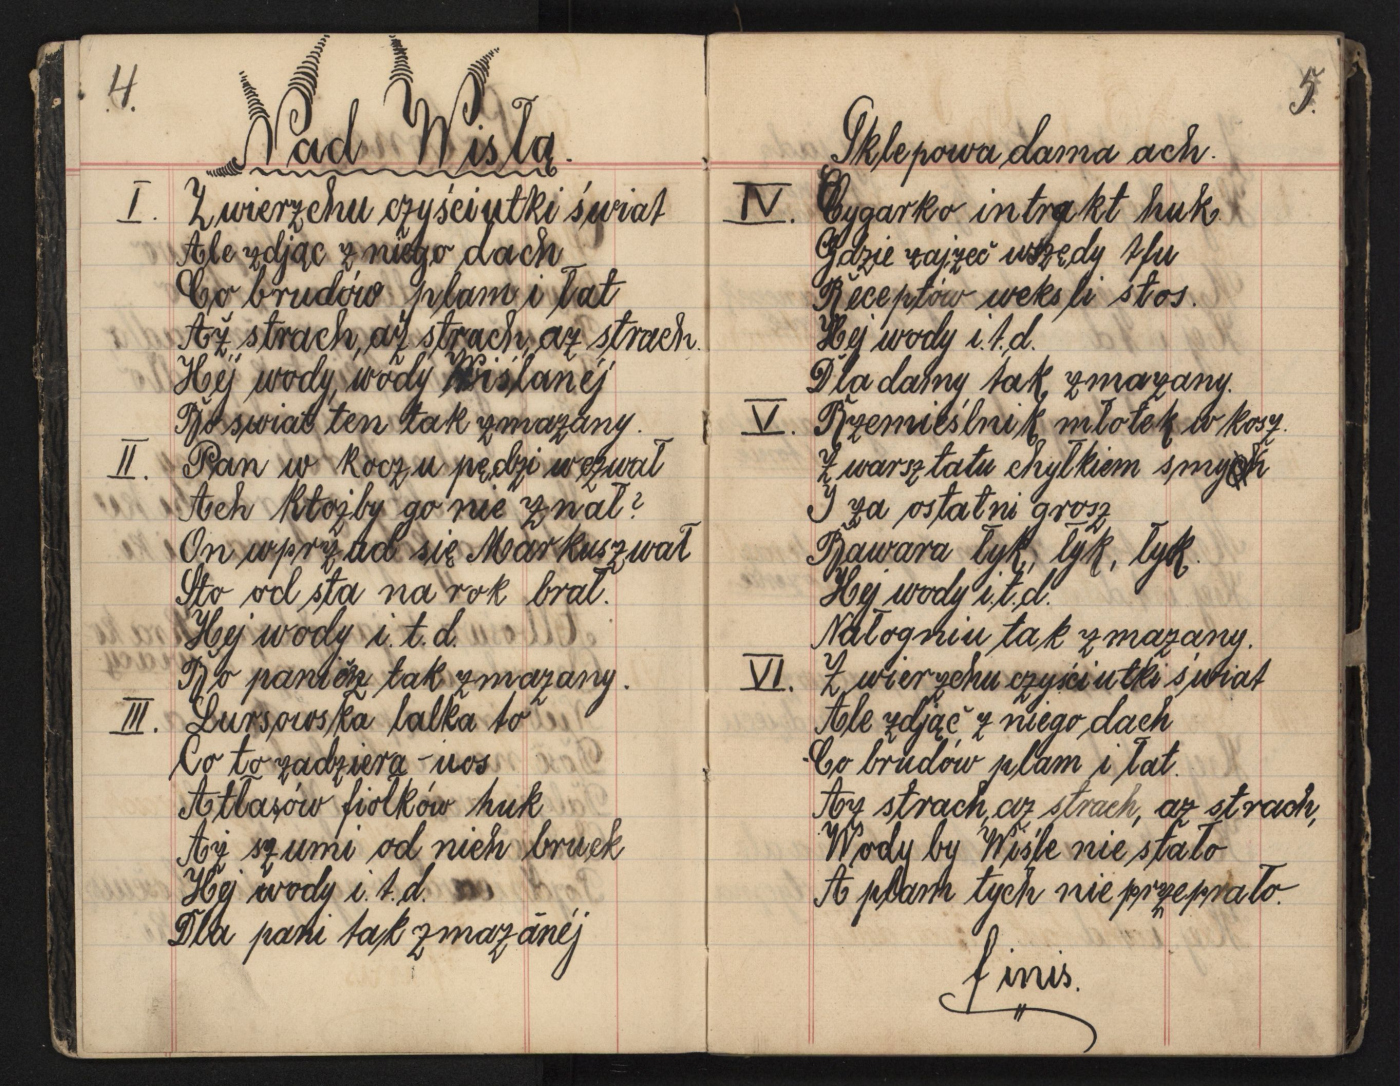 4.
Nad Wisłą.
I. Z wierzchu czyściutki świat
Ale zdjąc z niego dach
Co brudów plam i łat
Aż strach, aż strach, az strach.
Hej wody, wody Wiślanéj
Bo swiat ten tak zmazany.
II. Pan w koczu pędzi wczwał
Ach ktożby go nie znał?
On wprzad się Markuszwał
Sto od sta na rok brał.
Hej wody i. t. d.
Bo panicz tak zmazany.
III. Lursowska lalka to
Co to zadziera nos
Atłasów fiolków huk
Aż szumi od nich bruck
Hej wody i. t. d.
Dla pani tak zmazanéj
5.
Sklepowa dama ach.
IV. Cygarko intrakt huk
Gdzie zajzeć wszędy tfu
Receptów weksli stos.
Hej wody i.t.d.
Dla damy tak zmazany.
V. Rzemieślnik młotek w kosz.
Z warsztatu chyłkiem smych
I za ostatni grosz
Bawara łyk, łyk, łyk.
Hej wody i.t.d.
Nałogniu tak zmazany.
VI. Z wierzchu czyściutki świat
Ale zdjąć z niego dach
Co brudów plam i łat.
Az strach, az strach, az strach,
Wody by Wiśle nie stało
A plam tych nie przeprało.
finis.